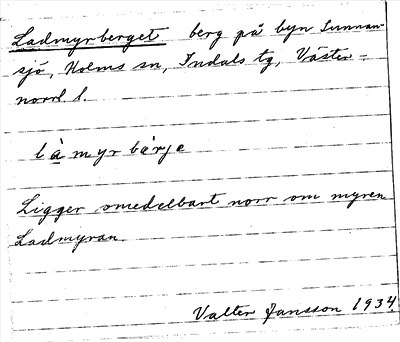 Ladmyrberget berg på byn Sunnan-
sjö, Holms sn, Indals tg, Väster-
norrl l.
làmyrbärje
Ligger omedelbart norr om myren
Ladmyran.
Valter Jansson 1934.